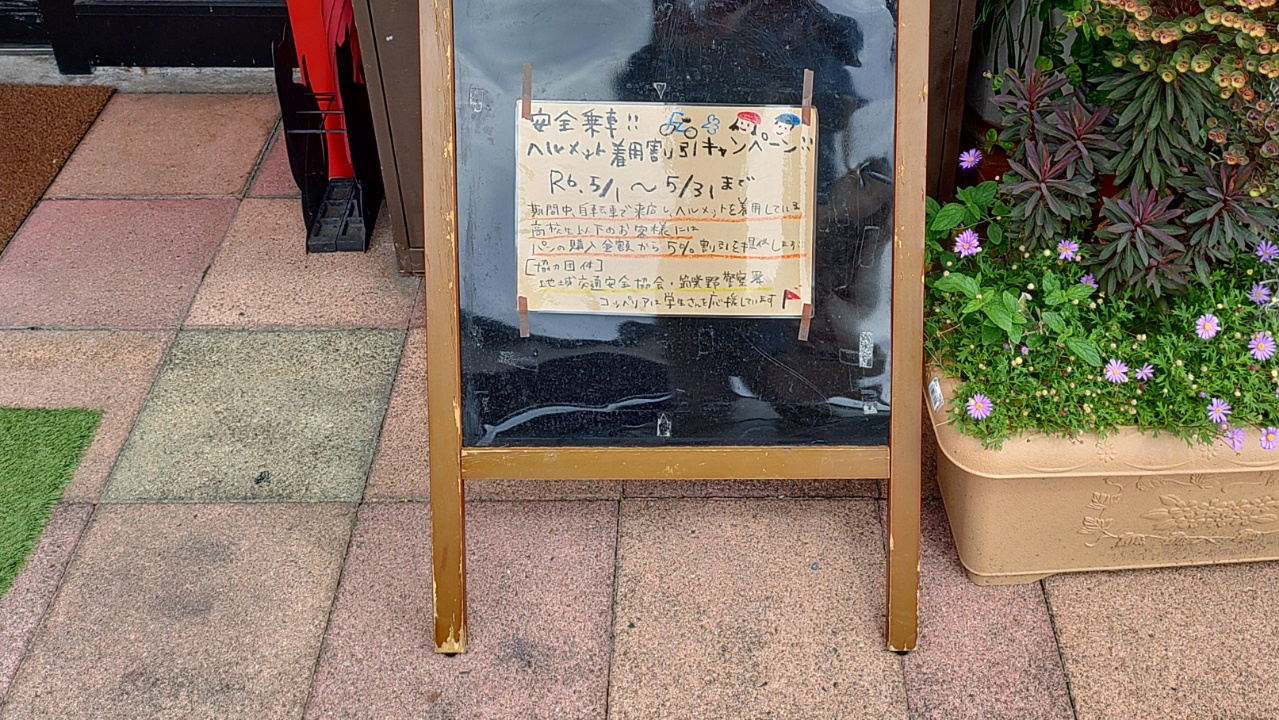 安全乗車!!
ヘルメット着用割り引キャンペーン!!
R6. 5/1 〜 5/31 まで
期間中、自転車で来店し、ヘルメットを着用している
高校生以下のお客様には
パンの購入金額から5%割引を提供します
[協力団体]
地域交通安全協会・筑紫野警察署
コッペリアは学生さんを応援しています